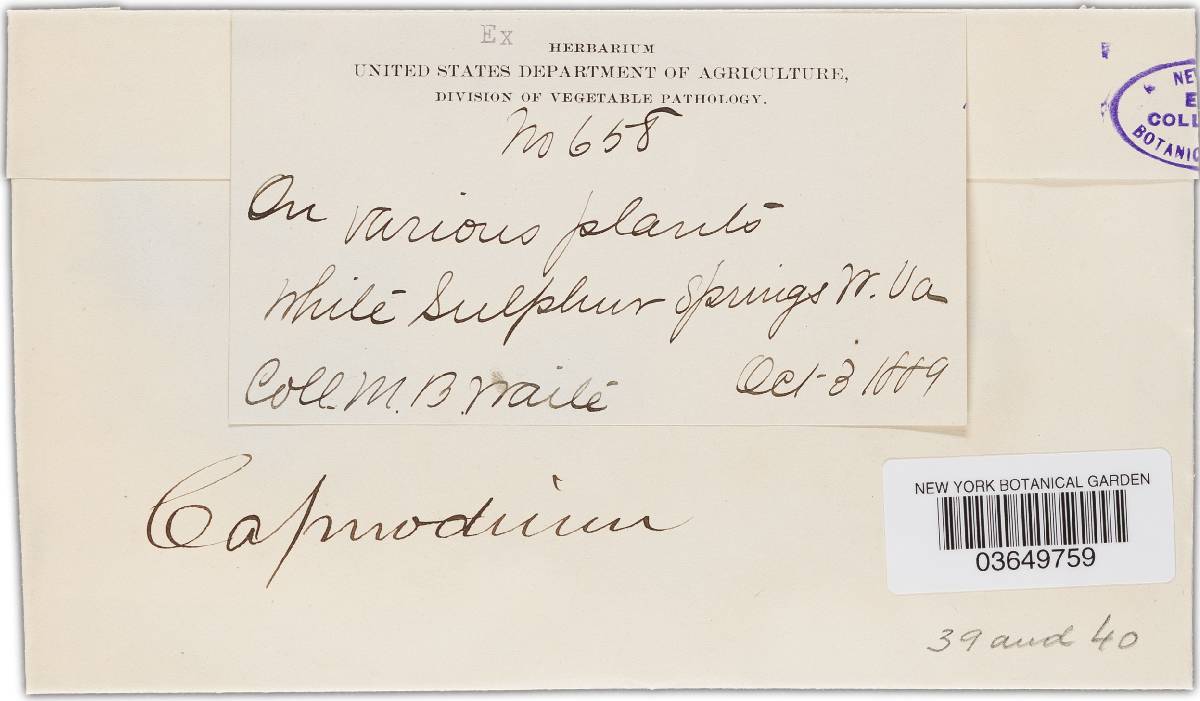 Ex HERBARIUM
UNITED STATES DEPARTMENT OF AGRICULTURE,
DIVISION OF VEGETABLE PATHOLOGY.
No 658
On various plants
White Sulphur Springs W. Va
Coll. M. B. Waite Oct 3 1889
Capnodium
NEW YORK BOTANICAL GARDEN
03649759
39 and 40
NE
E
COLL
BOTANIC